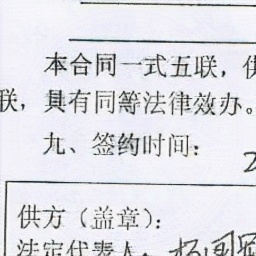 本合同一式五联，供
联，具有同等法律效办。
九、签约时间：
供方（盖章）：
法定代表人：杨国